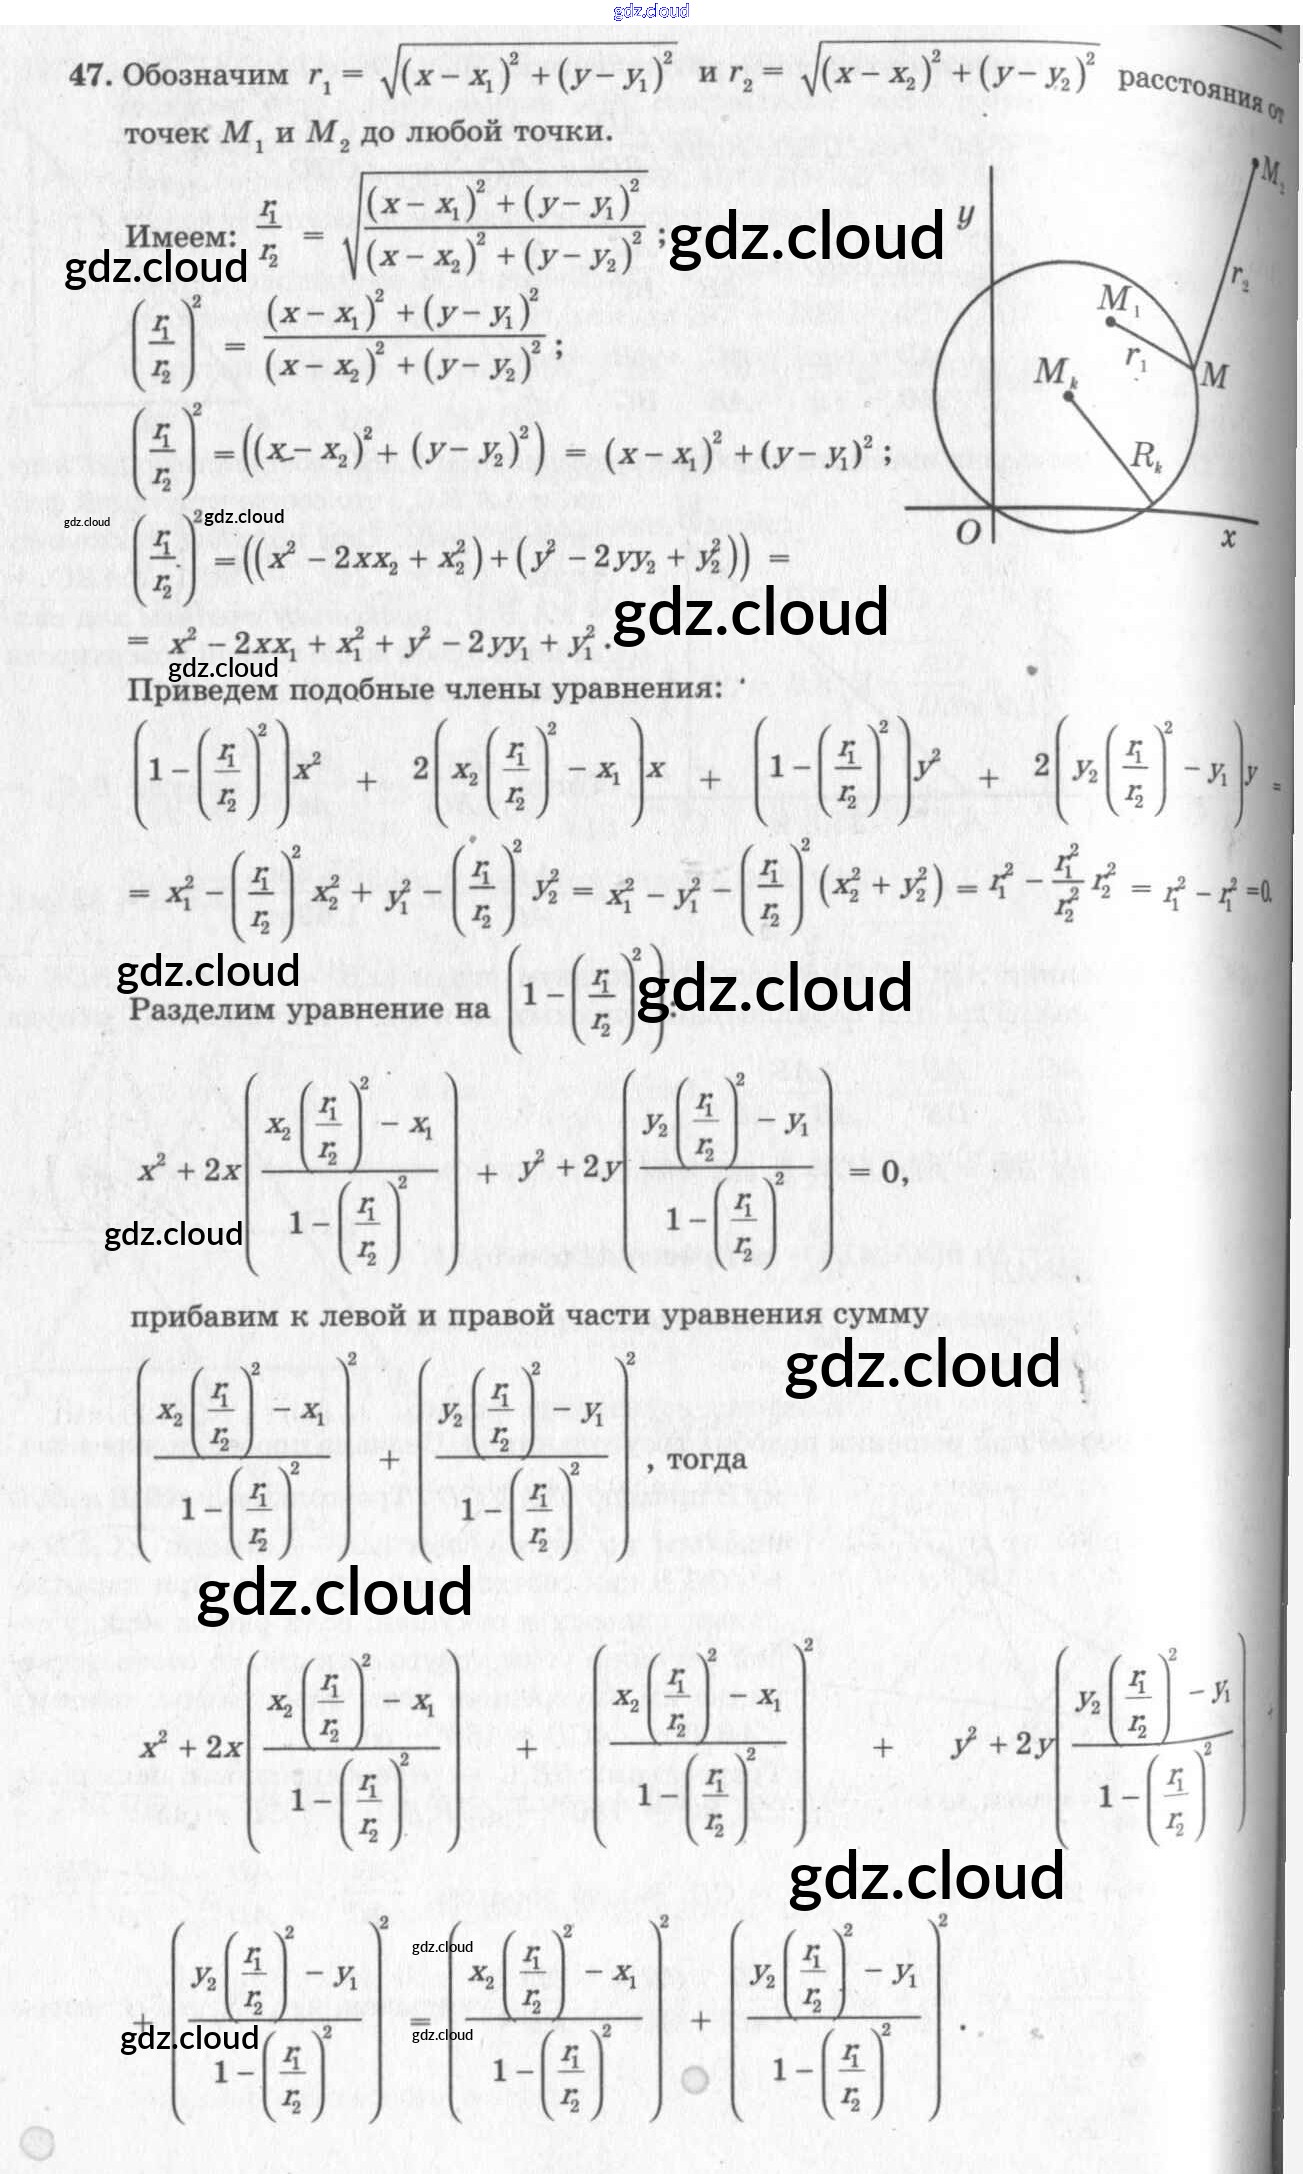 gdz.cloud
47. Обозначим r₁ = √((x − x₁)² + (y − y₁)²) и r₂ = √((x − x₂)² + (y − y₂)²) расстояния от
точек M₁ и M₂ до любой точки.
Имеем: r₁/r₂ = √(((x − x₁)² + (y − y₁)²)/((x − x₂)² + (y − y₂)²)); gdz.cloud
gdz.cloud
(r₁/r₂)² = ((x − x₁)² + (y − y₁)²)/((x − x₂)² + (y − y₂)²);
(r₁/r₂)² = ((x − x₂)² + (y − y₂)²) = (x − x₁)² + (y − y₁)²;
y
M₂
r₂
M₁
r₁
M
Mₖ
Rₖ
O
x
gdz.cloud
gdz.cloud
(r₁/r₂)² = ((x² − 2xx₂ + x₂²) + (y² − 2yy₂ + y₂²)) =
gdz.cloud
= x² − 2xx₁ + x₁² + y² − 2yy₁ + y₁².
gdz.cloud
Приведем подобные члены уравнения:
(1 − (r₁/r₂)²)x² + 2(x₂(r₁/r₂)² − x₁)x + (1 − (r₁/r₂)²)y² + 2(y₂(r₁/r₂)² − y₁)y =
= x₁² − (r₁/r₂)² x₂² + y₁² − (r₁/r₂)² y₂² = x₁² − y₁² − (r₁/r₂)² (x₂² + y₂²) = r₁² − r₁²/r₂² r₂² = r₁² − r₁² = 0.
gdz.cloud
Разделим уравнение на (1 − (r₁/r₂)²): gdz.cloud
x² + 2x((x₂(r₁/r₂)² − x₁)/(1 − (r₁/r₂)²)) + y² + 2y((y₂(r₁/r₂)² − y₁)/(1 − (r₁/r₂)²)) = 0,
gdz.cloud
прибавим к левой и правой части уравнения сумму
gdz.cloud
((x₂(r₁/r₂)² − x₁)/(1 − (r₁/r₂)²))² + ((y₂(r₁/r₂)² − y₁)/(1 − (r₁/r₂)²))², тогда
gdz.cloud
x² + 2x((x₂(r₁/r₂)² − x₁)/(1 − (r₁/r₂)²)) + ((x₂(r₁/r₂)² − x₁)/(1 − (r₁/r₂)²))² + y² + 2y((y₂(r₁/r₂)² − y₁)/(1 − (r₁/r₂)²))
gdz.cloud
+ ((y₂(r₁/r₂)² − y₁)/(1 − (r₁/r₂)²))² = ((x₂(r₁/r₂)² − x₁)/(1 − (r₁/r₂)²))² + ((y₂(r₁/r₂)² − y₁)/(1 − (r₁/r₂)²))².
gdz.cloud
gdz.cloud
gdz.cloud